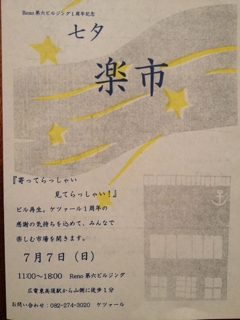 Reno 第六ビルジング1周年記念
七夕
楽市
『寄ってらっしゃい
見てらっしゃい!』
ビル再生。ケツァール1周年の
感謝の気持ちを込めて、みんなで
楽しむ市場を開きます。
7月7日(日)
11:00~18:00 Reno 第六ビルジング
広電東高須駅から山側に徒歩1分
お問い合わせ:082-274-3020 ケツァール